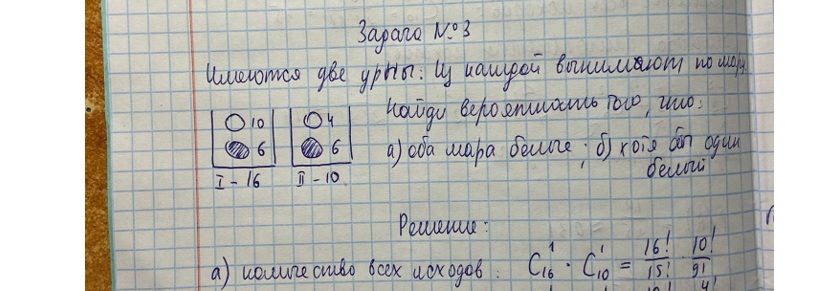 Задача №3
Имеются две урны. Из каждой вынимают по шару
Найди вероятность того, что:
а) оба шара белые; б) хотя бы один
белый
10 4
6 6
I - 16 II - 10
Решение:
а) количество всех исходов: C₁₆¹ · C₁₀¹ = 16!/15! · 10!/9!